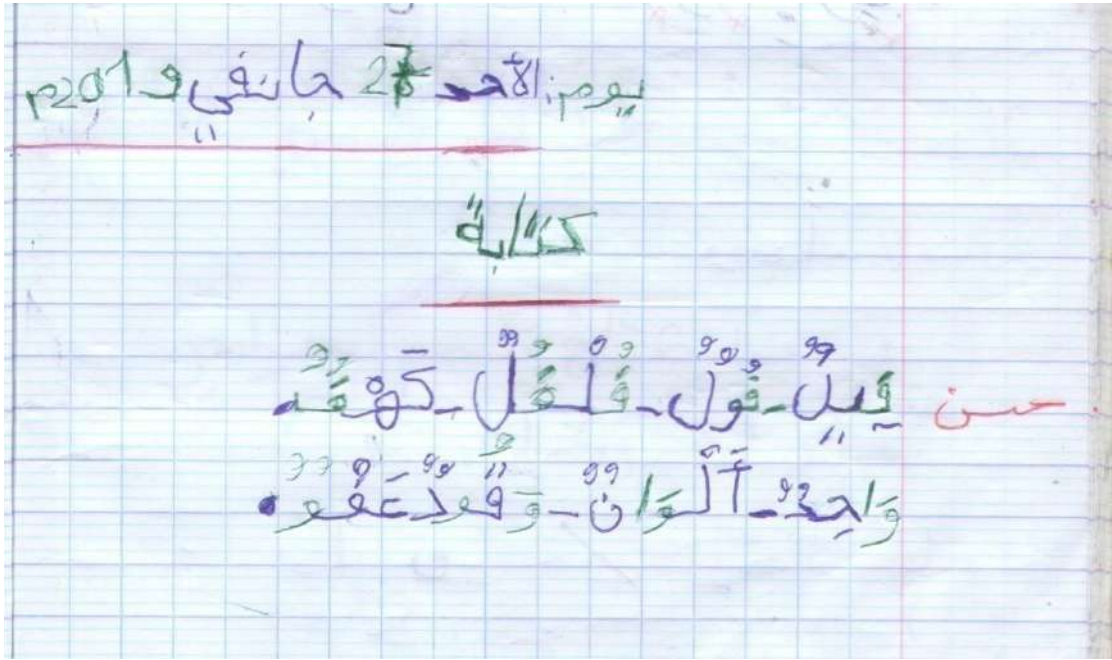 يوم: الأحد 27 جانفي 2019م
كتابة
حسن
فِيلٌ - فُولٌ - فُلْفُلٌ - كَهْفٌ.
وَاحِدٌ - أَلْوَانٌ - وَقُودٌ عَفْوٌ.